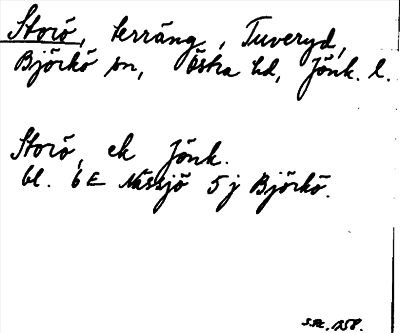 Storö, terräng, Tuveryd,
Björkö sn, Östra hd, Jönk. l.
Storö, ek Jönk.
bl. 6E Nässjö 5j Björkö.
1958.